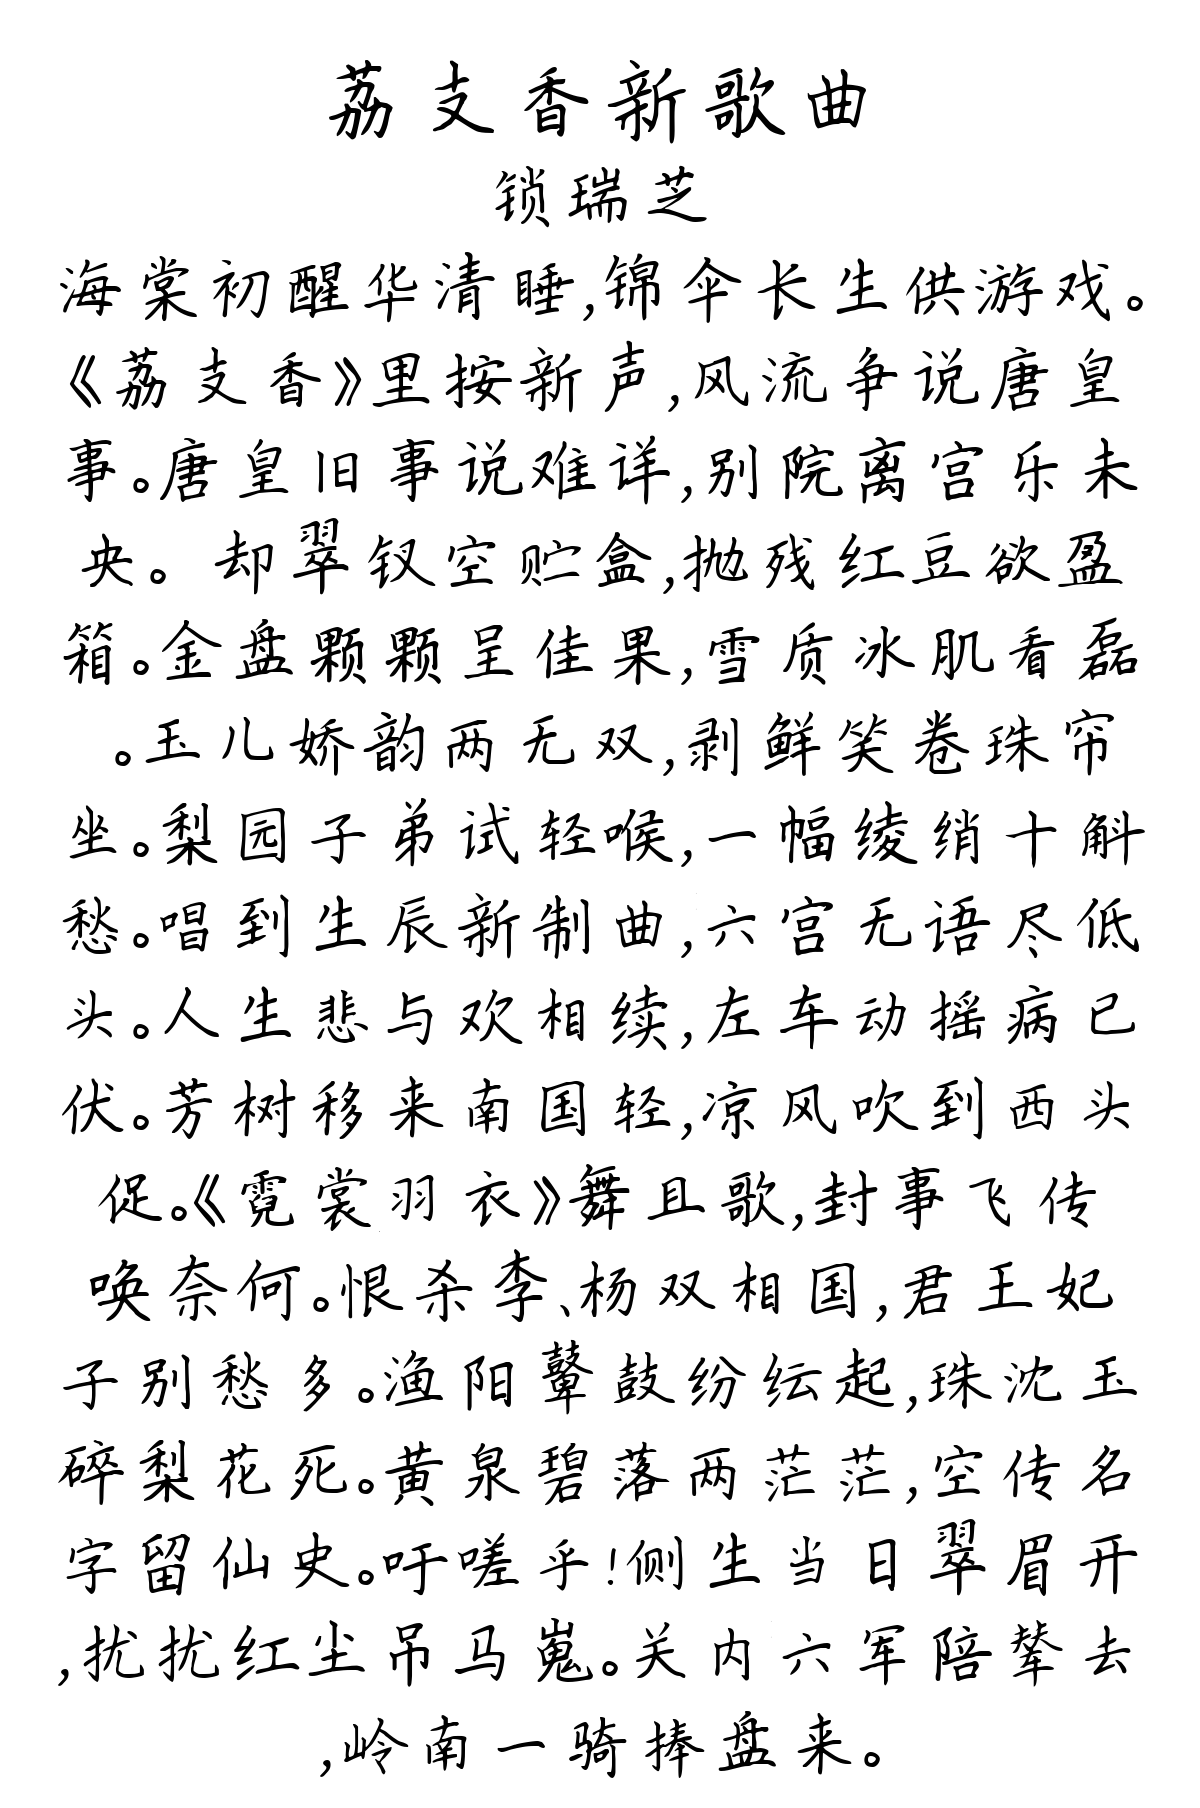 荔支香新歌曲
锁瑞芝
海棠初醒华清睡,锦伞长生供游戏。
《荔支香》里按新声,风流争说唐皇
事。唐皇旧事说难详,别院离宫乐未
央。却翠钗空贮盒,抛残红豆欲盈
箱。金盘颗颗呈佳果,雪质冰肌看磊
。玉儿娇韵两无双,剥鲜笑卷珠帘
坐。梨园子弟试轻喉,一幅绫绡十斛
愁。唱到生辰新制曲,六宫无语尽低
头。人生悲与欢相续,左车动摇病已
伏。芳树移来南国轻,凉风吹到西头
促。《霓裳羽衣》舞且歌,封事飞传
唤奈何。恨杀李、杨双相国,君王妃
子别愁多。渔阳鼙鼓纷纭起,珠沈玉
碎梨花死。黄泉碧落两茫茫,空传名
字留仙史。吁嗟乎!侧生当日翠眉开
,扰扰红尘吊马嵬。关内六军陪辇去
,岭南一骑捧盘来。